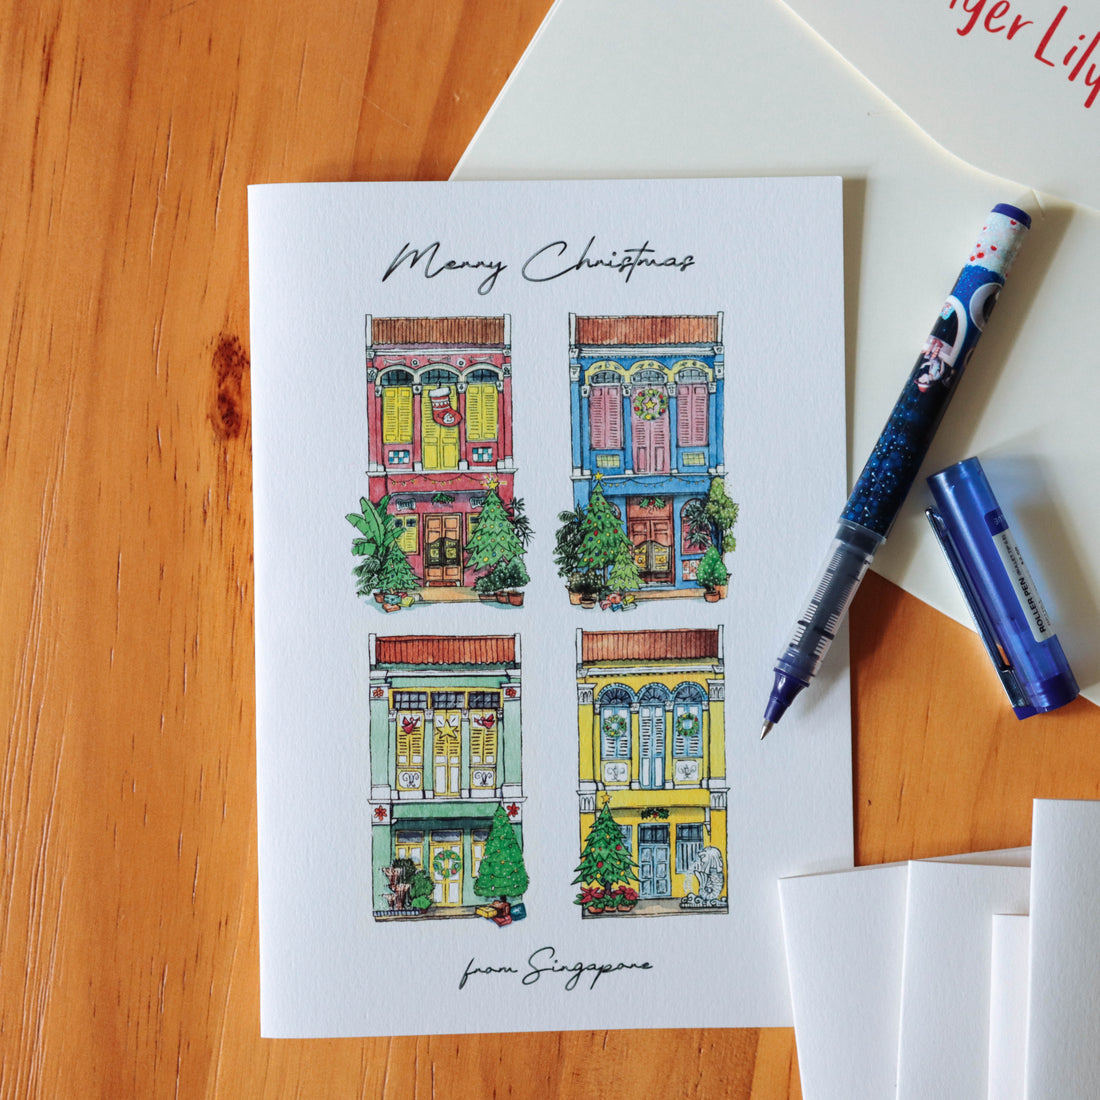 Merry Christmas
from Singapore
Lily
ROLLER PEN